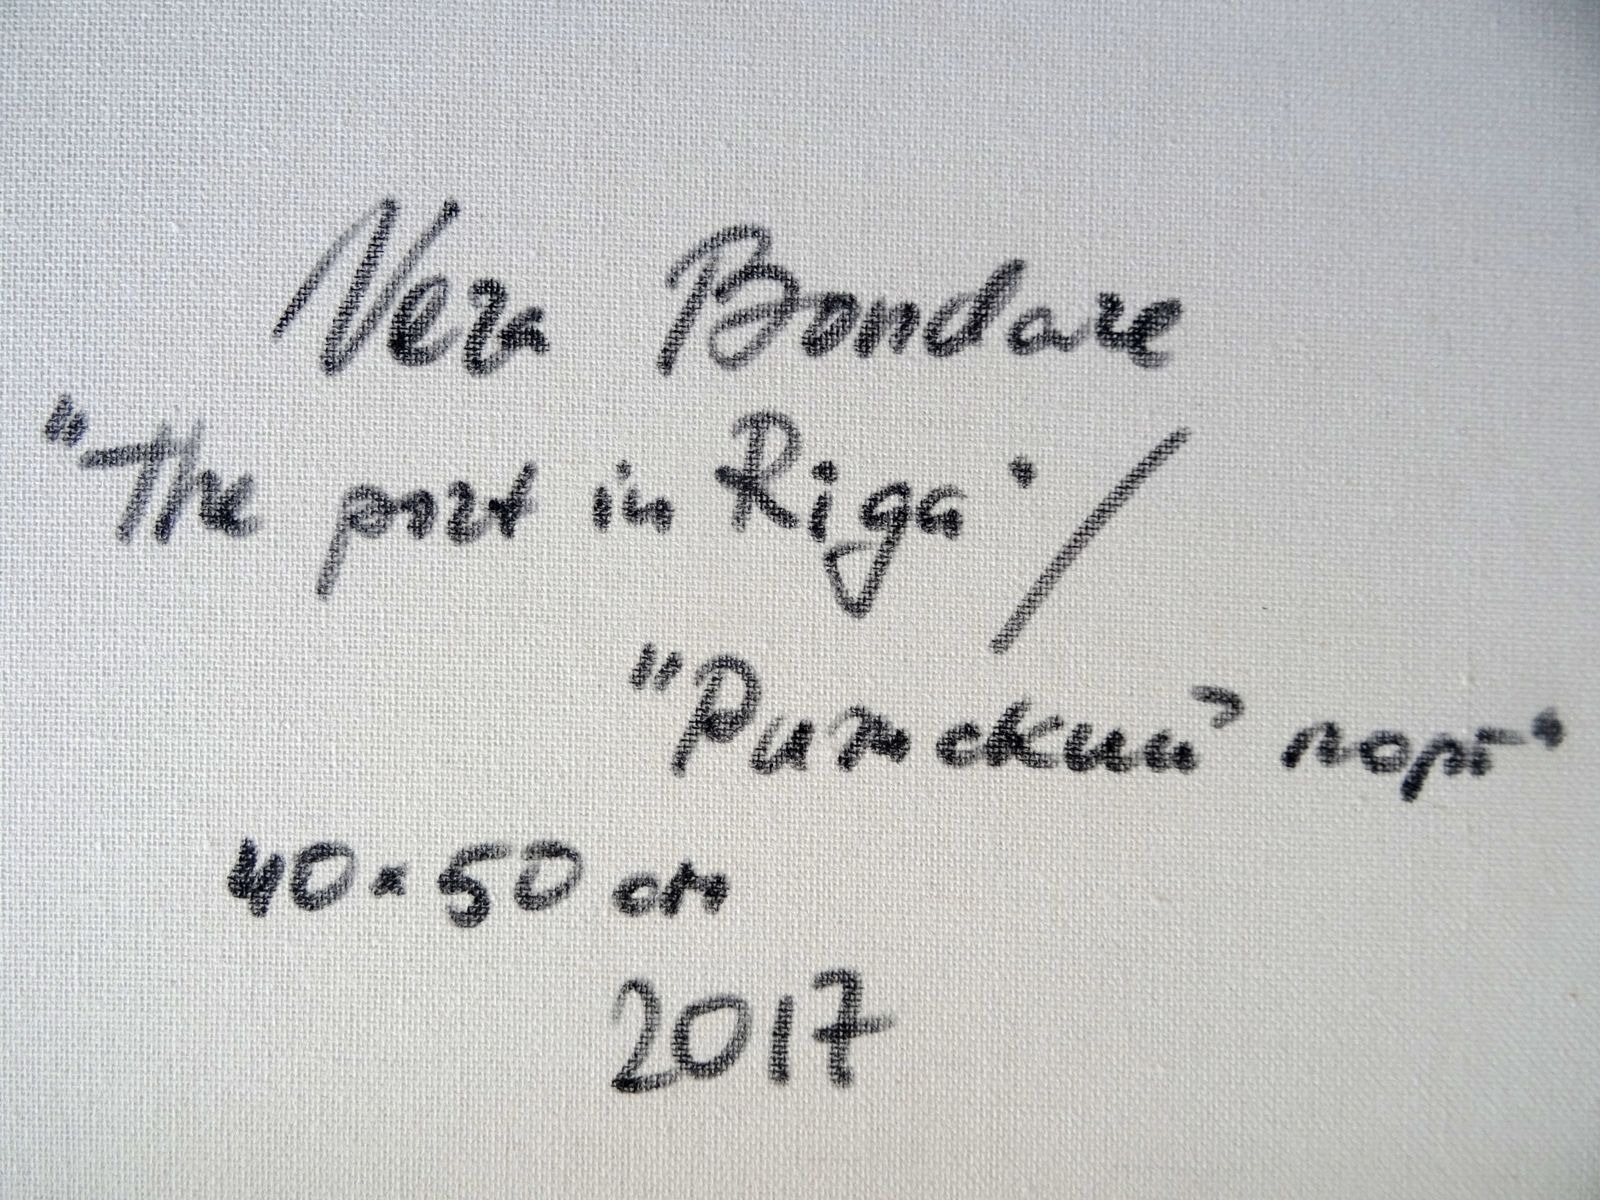 Vera Bondare
"The port in Riga" /
"Рижский порт"
40×50 cm
2017